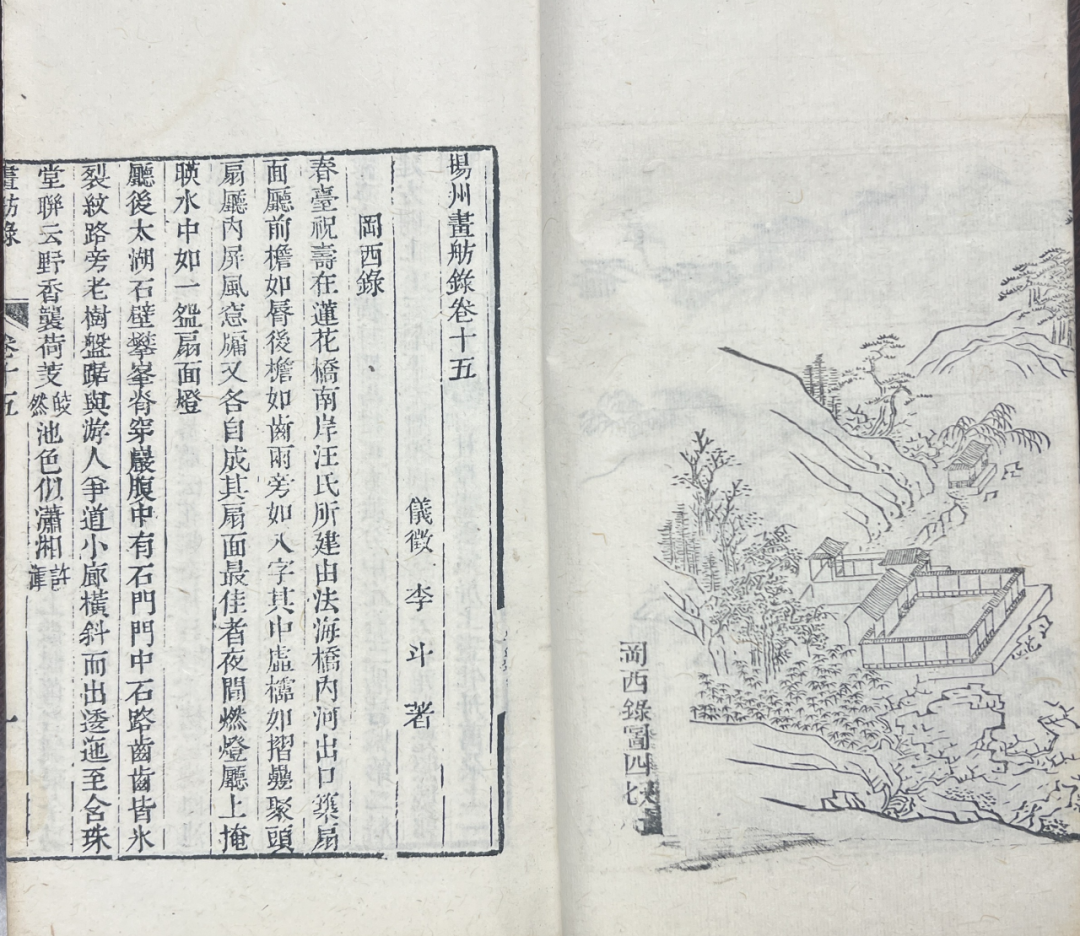 岡西錄圖四
揚州畫舫錄卷十五
儀徵 李斗 著
岡西錄
春臺祝壽在蓮花橋南岸汪氏所建由法海橋內河出口築扇
面廳前檐如脣後檐如齒兩旁如八字其中虛櫺如摺疊聚頭
扇廳內屏風窓牖又各自成其扇面最佳者夜間燃燈廳上掩
映水中如一盌扇面燈
廳後太湖石壁攀峯脊穿巖腹中有石門門中石路齒齒皆氷
裂紋路旁老樹盤踞與游人爭道小廊橫斜而出逶迤至含珠
堂聯云野香襲荷芰皎然池色似瀟湘許渾
畫舫錄 卷十五 一